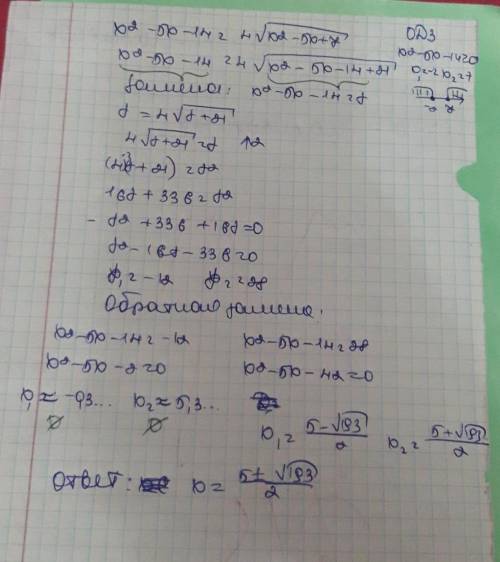 x² - 5x - 14 = 4√(x² - 5x + 7)
ОДЗ
x² - 5x - 14 ≥ 0
x² - 5x - 14 = 4√(x² - 5x - 14 + 21)
x₁ = -2 x₂ = 7
Замена: x² - 5x - 14 = y
-2 7
y = 4√(y + 21)
4√(y + 21) = y ↑2
16y + 336 = y²
- y² + 336 + 16y = 0
y² - 16y - 336 = 0
y₁ = -12 y₂ = 28
Обратная замена:
x² - 5x - 14 = -12 x² - 5x - 14 = 28
x² - 5x - 2 = 0 x² - 5x - 42 = 0
x₁ ≈ -0,3... x₂ ≈ 5,3...
∅ ∅
x₁ = (5 - √193)/2 x₂ = (5 + √193)/2
Ответ: x = (5 ± √193)/2